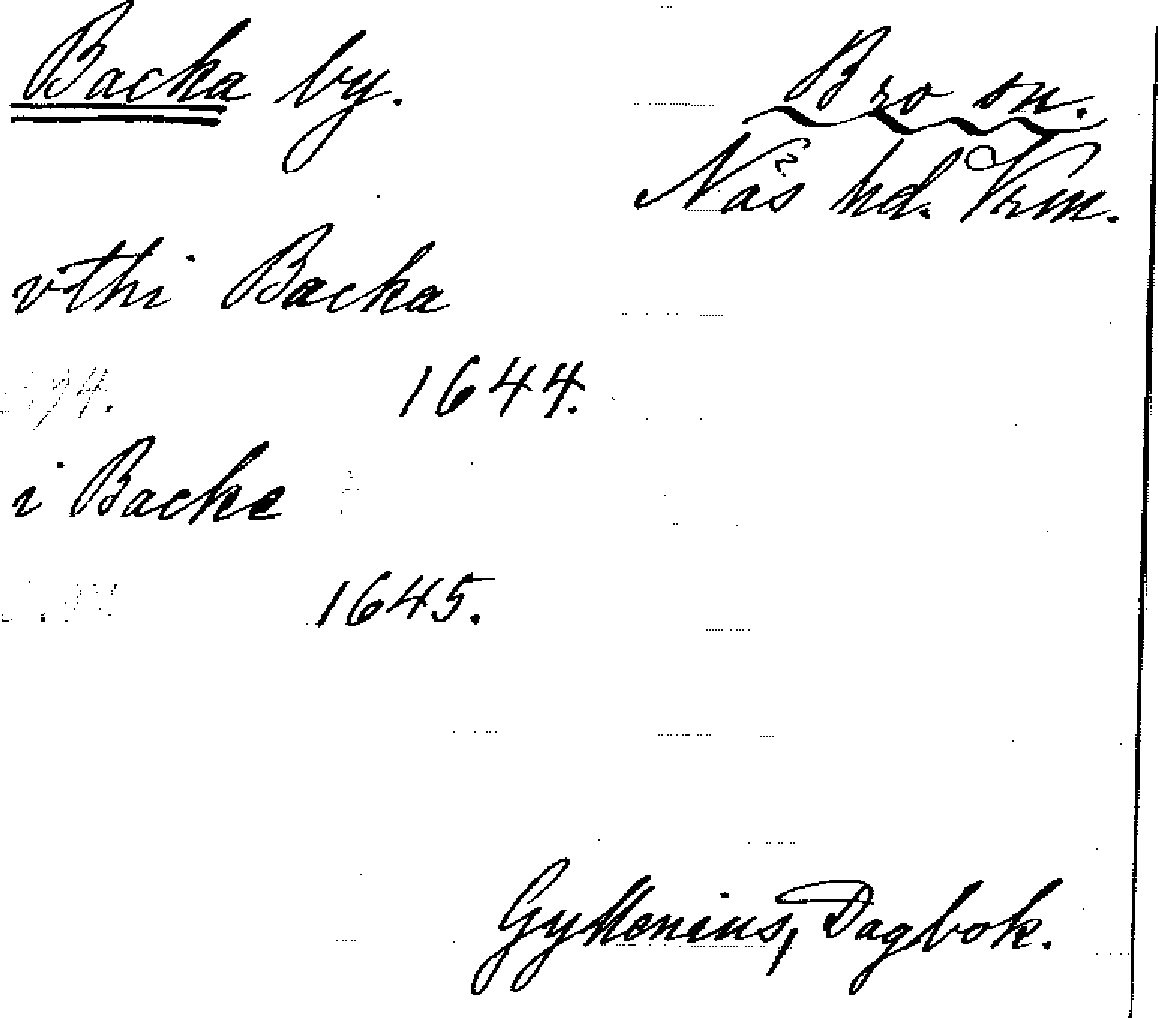 Backa by.
Bro sn.
Näs hd. Vrm.
vthi Backa
1644.
i Backe
1645.
Gyllenius, Dagbok.